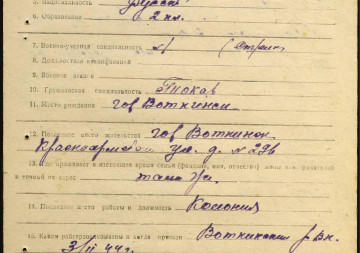 5. Национальность русск
6. Образование 2 кл.
7. Военно-учетная специальность №1 (Стрелк
8. Должностная квалификация
9. Военное звание
10. Гражданская специальность Токар
11. Место рождения гор Воткинск
12. Последнее место жительства гор Воткинск
Красноармейск ул. д. № 296
13. Где проживает в настоящее время семья (фамилия, имя, отчество) жены или родителей
и точный их адрес там же
14. Последнее место работы и должность Колония
15. Каким райвоенкоматом и когда призван Воткинским р. Вк.
3/II 44 г.